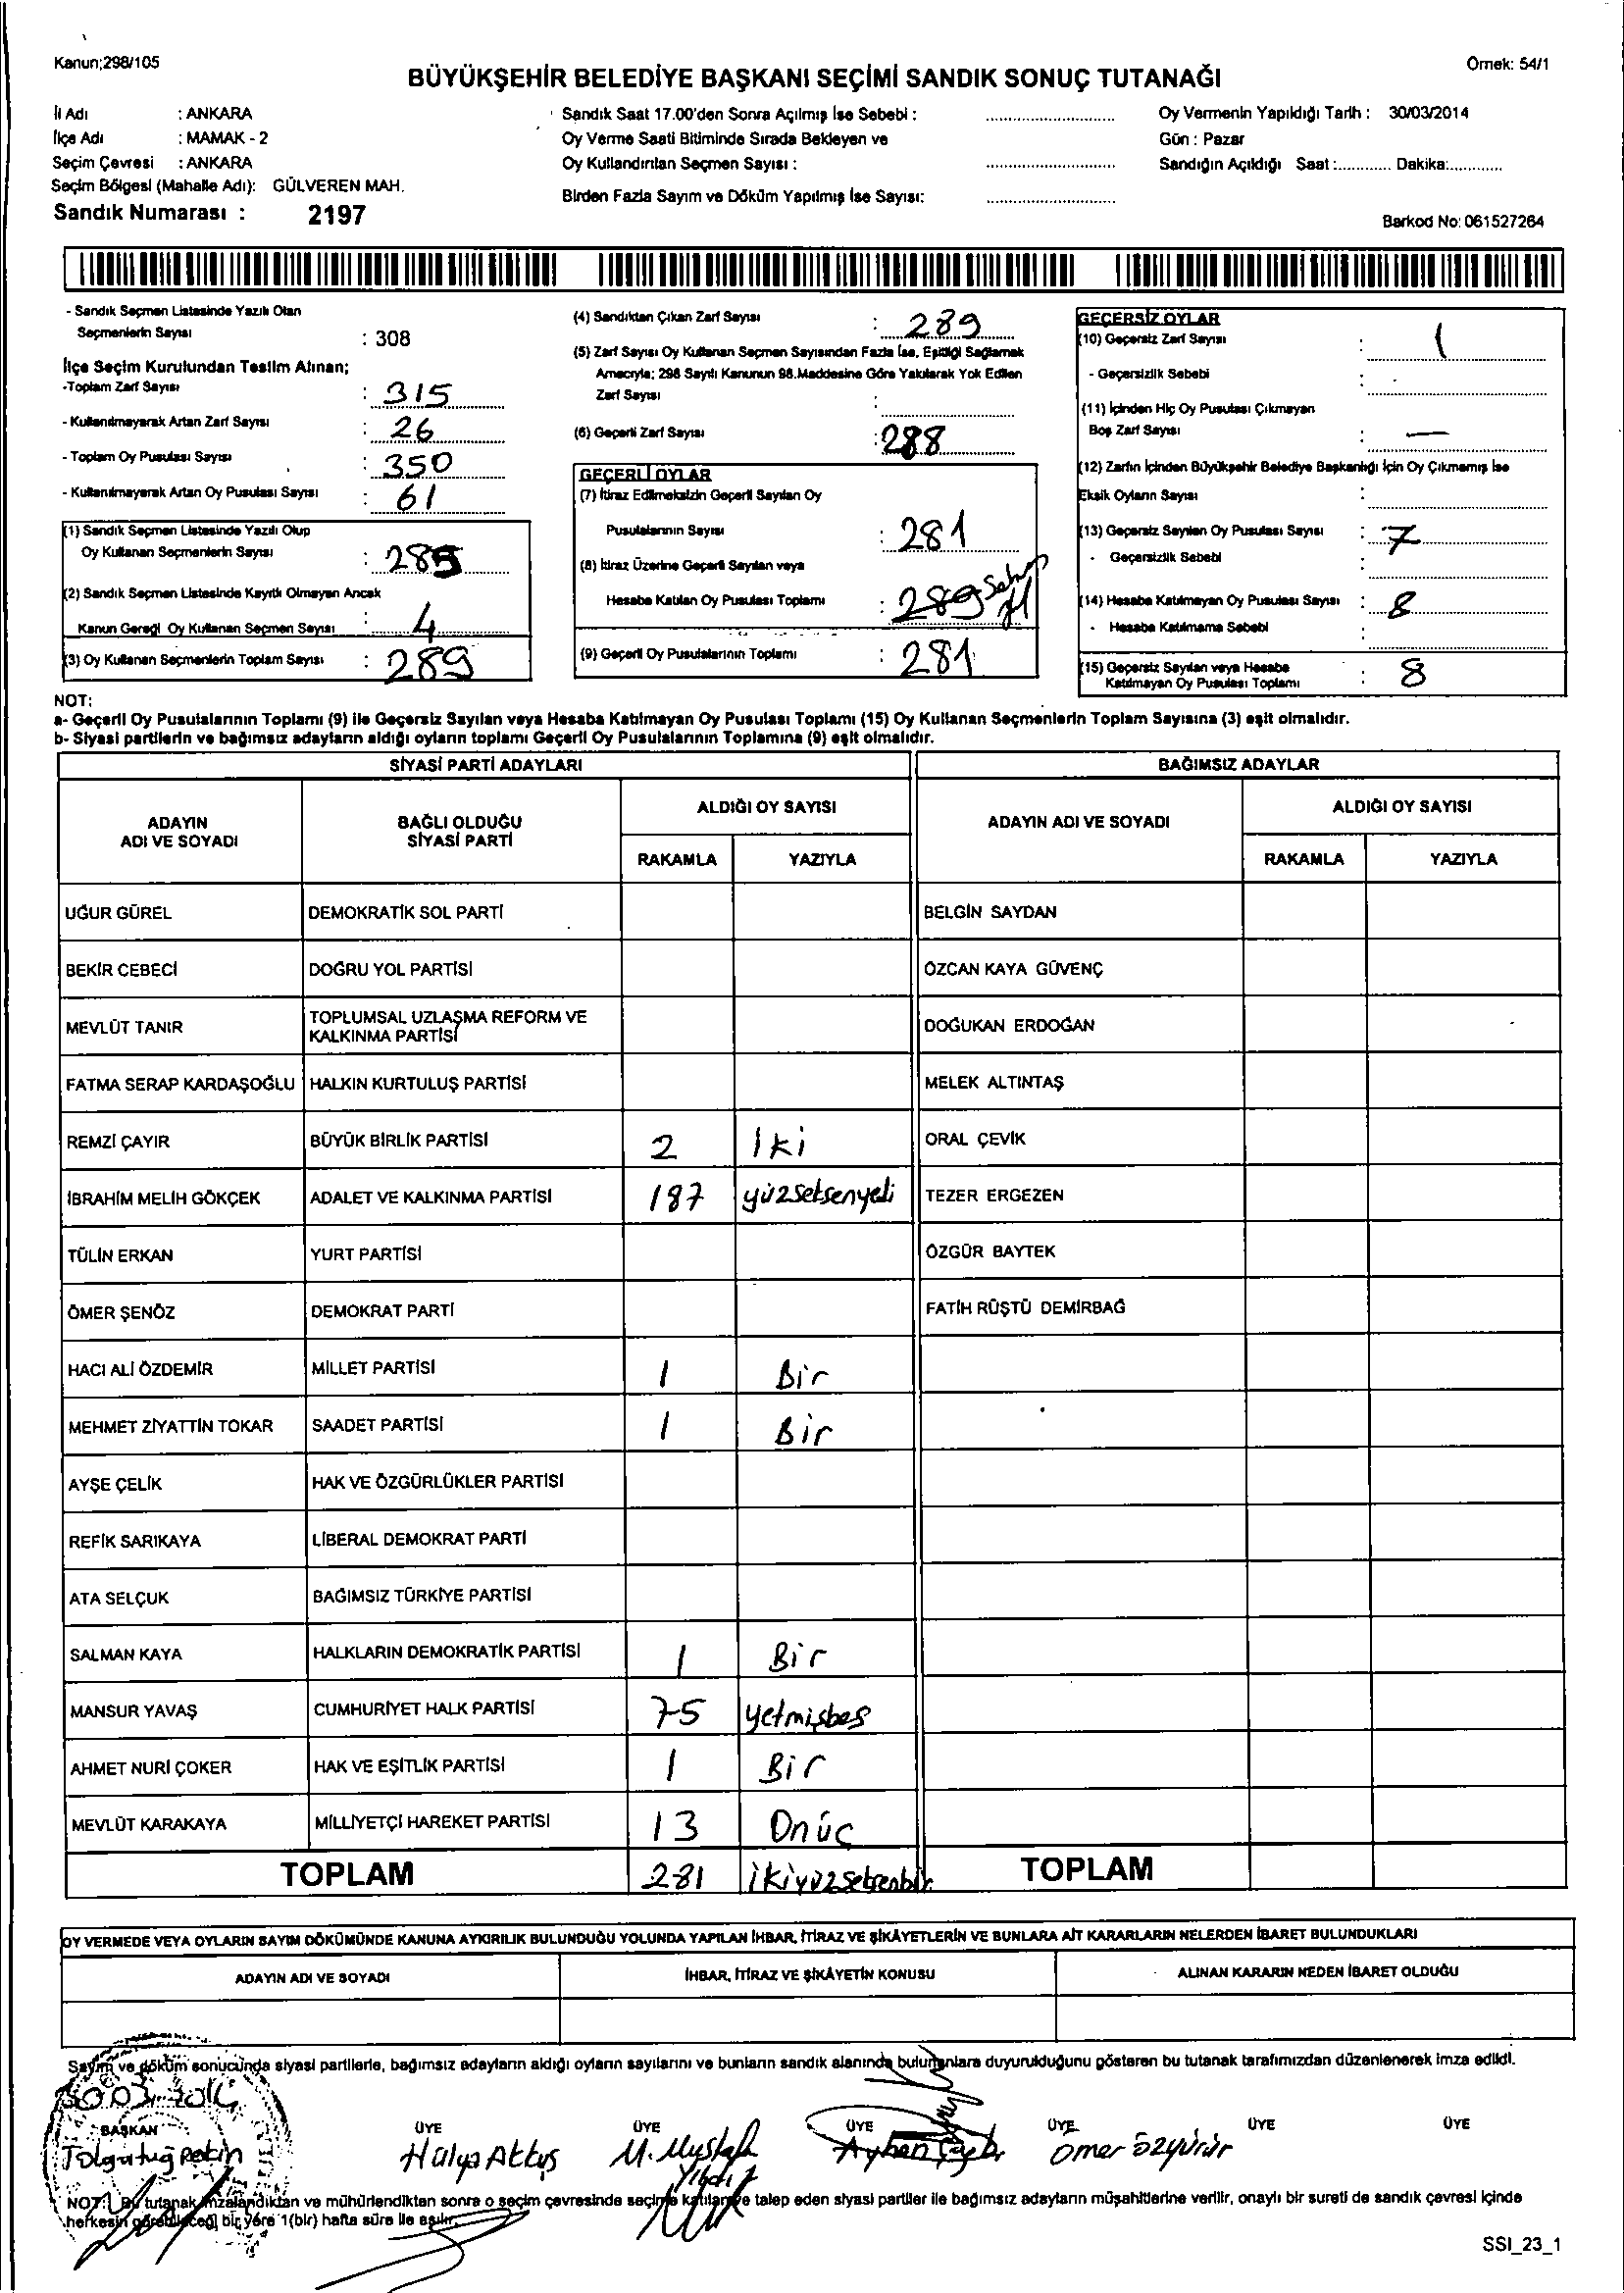 Kanun;298/105
Örnek: 54/1
BÜYÜKŞEHİR BELEDİYE BAŞKANI SEÇİMİ SANDIK SONUÇ TUTANAĞI
İl Adı : ANKARA
İlçe Adı : MAMAK - 2
Seçim Çevresi : ANKARA
Seçim Bölgesi (Mahalle Adı): GÜLVEREN MAH.
Sandık Numarası : 2197
Sandık Saat 17.00'den Sonra Açılmış İse Sebebi :
Oy Verme Saati Bitiminde Sırada Bekleyen ve
Oy Kullandırılan Seçmen Sayısı :
Birden Fazla Sayım ve Döküm Yapılmış İse Sayısı:
Oy Vermenin Yapıldığı Tarih : 30/03/2014
Gün : Pazar
Sandığın Açıldığı Saat :............ Dakika:............
Barkod No: 061527264
- Sandık Seçmen Listesinde Yazılı Olan
Seçmenlerin Sayısı : 308
İlçe Seçim Kurulundan Teslim Alınan;
-Toplam Zarf Sayısı : 315
- Kullanılmayarak Artan Zarf Sayısı : 26
- Toplam Oy Pusulası Sayısı : 350
- Kullanılmayarak Artan Oy Pusulası Sayısı : 61
(1) Sandık Seçmen Listesinde Yazılı Olup
Oy Kullanan Seçmenlerin Sayısı : 285
(2) Sandık Seçmen Listesinde Kayıtlı Olmayan Ancak
Kanun Gereği Oy Kullanan Seçmen Sayısı : 4
(3) Oy Kullanan Seçmenlerin Toplam Sayısı : 289
(4) Sandıktan Çıkan Zarf Sayısı : 289
(5) Zarf Sayısı Oy Kullanan Seçmen Sayısından Fazla İse, Eşitliği Sağlamak
Amacıyla; 298 Sayılı Kanunun 98.Maddesine Göre Yakılarak Yok Edilen
Zarf Sayısı :
(6) Geçerli Zarf Sayısı : 288
GEÇERLİ OYLAR
(7) İtiraz Edilmeksizin Geçerli Sayılan Oy
Pusulalarının Sayısı : 281
(8) İtiraz Üzerine Geçerli Sayılan veya
Hesaba Katılan Oy Pusulası Toplamı : 289
(9) Geçerli Oy Pusulalarının Toplamı : 281
GEÇERSİZ OYLAR
(10) Geçersiz Zarf Sayısı : 1
- Geçersizlik Sebebi :
(11) İçinden Hiç Oy Pusulası Çıkmayan
Boş Zarf Sayısı : —
(12) Zarfın İçinden Büyükşehir Belediye Başkanlığı İçin Oy Çıkmamış İse
Eksik Oyların Sayısı :
(13) Geçersiz Sayılan Oy Pusulası Sayısı : 7
- Geçersizlik Sebebi :
(14) Hesaba Katılmayan Oy Pusulası Sayısı : 8
- Hesaba Katılmama Sebebi :
(15) Geçersiz Sayılan veya Hesaba
Katılmayan Oy Pusulası Toplamı : 8
NOT:
a- Geçerli Oy Pusulalarının Toplamı (9) ile Geçersiz Sayılan veya Hesaba Katılmayan Oy Pusulası Toplamı (15) Oy Kullanan Seçmenlerin Toplam Sayısına (3) eşit olmalıdır.
b- Siyasi partilerin ve bağımsız adayların aldığı oyların toplamı Geçerli Oy Pusulalarının Toplamına (9) eşit olmalıdır.
SİYASİ PARTİ ADAYLARI
BAĞIMSIZ ADAYLAR
ADAYIN ADI VE SOYADI
BAĞLI OLDUĞU SİYASİ PARTİ
ALDIĞI OY SAYISI
RAKAMLA YAZIYLA
ADAYIN ADI VE SOYADI
ALDIĞI OY SAYISI
RAKAMLA YAZIYLA
UĞUR GÜREL DEMOKRATİK SOL PARTİ BELGİN SAYDAN
BEKİR CEBECİ DOĞRU YOL PARTİSİ ÖZCAN KAYA GÜVENÇ
MEVLÜT TANIR TOPLUMSAL UZLAŞMA REFORM VE KALKINMA PARTİSİ DOĞUKAN ERDOĞAN
FATMA SERAP KARDAŞOĞLU HALKIN KURTULUŞ PARTİSİ MELEK ALTINTAŞ
REMZİ ÇAYIR BÜYÜK BİRLİK PARTİSİ 2 İki ORAL ÇEVİK
İBRAHİM MELİH GÖKÇEK ADALET VE KALKINMA PARTİSİ 187 yüzseksenyedi TEZER ERGEZEN
TÜLİN ERKAN YURT PARTİSİ ÖZGÜR BAYTEK
ÖMER ŞENÖZ DEMOKRAT PARTİ FATİH RÜŞTÜ DEMİRBAĞ
HACI ALİ ÖZDEMİR MİLLET PARTİSİ 1 Bir
MEHMET ZİYATTİN TOKAR SAADET PARTİSİ 1 Bir
AYŞE ÇELİK HAK VE ÖZGÜRLÜKLER PARTİSİ
REFİK SARIKAYA LİBERAL DEMOKRAT PARTİ
ATA SELÇUK BAĞIMSIZ TÜRKİYE PARTİSİ
SALMAN KAYA HALKLARIN DEMOKRATİK PARTİSİ 1 Bir
MANSUR YAVAŞ CUMHURİYET HALK PARTİSİ 75 yetmişbeş
AHMET NURİ ÇOKER HAK VE EŞİTLİK PARTİSİ 1 Bir
MEVLÜT KARAKAYA MİLLİYETÇİ HAREKET PARTİSİ 13 Onüç
TOPLAM 281 ikiyüzseksenbir TOPLAM
OY VERMEDE VEYA OYLARIN SAYIM DÖKÜMÜNDE KANUNA AYKIRILIK BULUNDUĞU YOLUNDA YAPILAN İHBAR, İTİRAZ VE ŞİKÂYETLERİN VE BUNLARA AİT KARARLARIN NELERDEN İBARET BULUNDUKLARI
ADAYIN ADI VE SOYADI İHBAR, İTİRAZ VE ŞİKÂYETİN KONUSU ALINAN KARARIN NEDEN İBARET OLDUĞU
Sayım ve döküm sonucunda siyasi partilerle, bağımsız adayların aldığı oyların sayılarını ve bunların sandık alanında bulunanlara duyurulduğunu gösteren bu tutanak tarafımızdan düzenlenerek imza edildi.
30.03.2014
BAŞKAN ÜYE ÜYE ÜYE ÜYE ÜYE ÜYE
Hülya Aktuş M. Mustafa Ömer Özyürür
NOT: Bu tutanak imzalandıktan ve mühürlendikten sonra o seçim çevresinde seçime katılan ve talep eden siyasi partiler ile bağımsız adayların müşahitlerine verilir, onaylı bir sureti de sandık çevresi içinde
herkesin görebileceği bir yere 1(bir) hafta süre ile asılır.
SSI_23_1